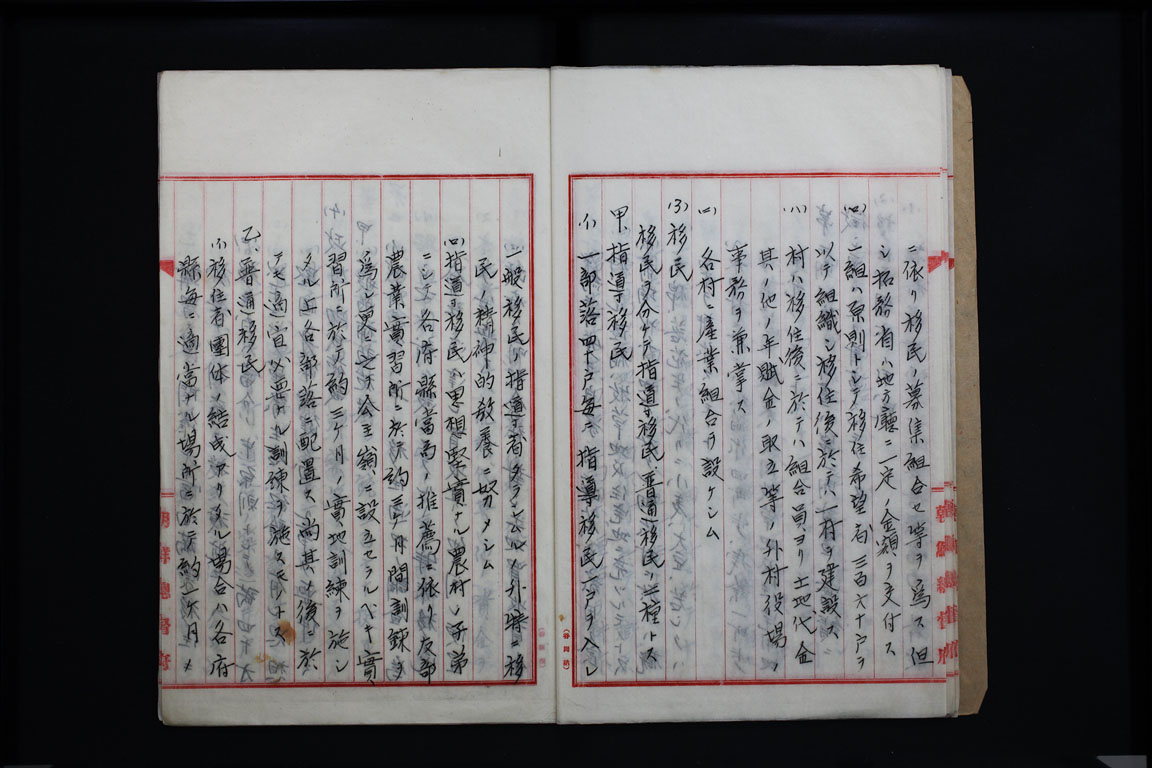 ニ依リ移民ノ募集組合セ等ヲ為ス但
シ拓務省ハ地方廳ニ一定ノ金額ヲ交付ス
(ロ)一組ハ原則トシテ移住希望者三百六十戸ヲ
以テ組織シ移住後ニ於テハ一村ヲ建設ス
(ハ)村ハ移住後ニ於テハ組合員ヨリ土地代金
其ノ他ノ年賦金ノ取立等ノ外村役場ノ
事務ヲ兼掌ス
(ニ)各村ニ産業組合ヲ設ケシム
(3)移民
移民ヲ分ケテ指導移民、普通移民ノ二種トス
甲、指導移民
(イ)一部落四十戸毎ニ指導移民一戸ヲ入レ
一般移民ノ指導者タラシムルノ外特ニ移
民ノ精神的教養ニ努メシム
(ロ)指導移民ハ思想堅實ナル農村ノ子弟
ニシテ各府縣當局ノ推薦ニ依リ友部
農業實習所ニ於テ約三ケ月間訓錬ヲ
為シ更ニ之ヲ公主嶺ニ設立セラルベキ實
習所ニ於テ約三ケ月ノ實地訓練ヲ施シ
タル上各部落ニ配置ス尚其ノ後ニ於
テモ適宜必要ナル訓練ヲ施スモノトス
乙、普通移民
(イ)移住者團体ノ結成アリタル場合ハ各府
縣毎ニ適當ナル場所ニ於テ約一ケ月ノ
朝鮮總督府